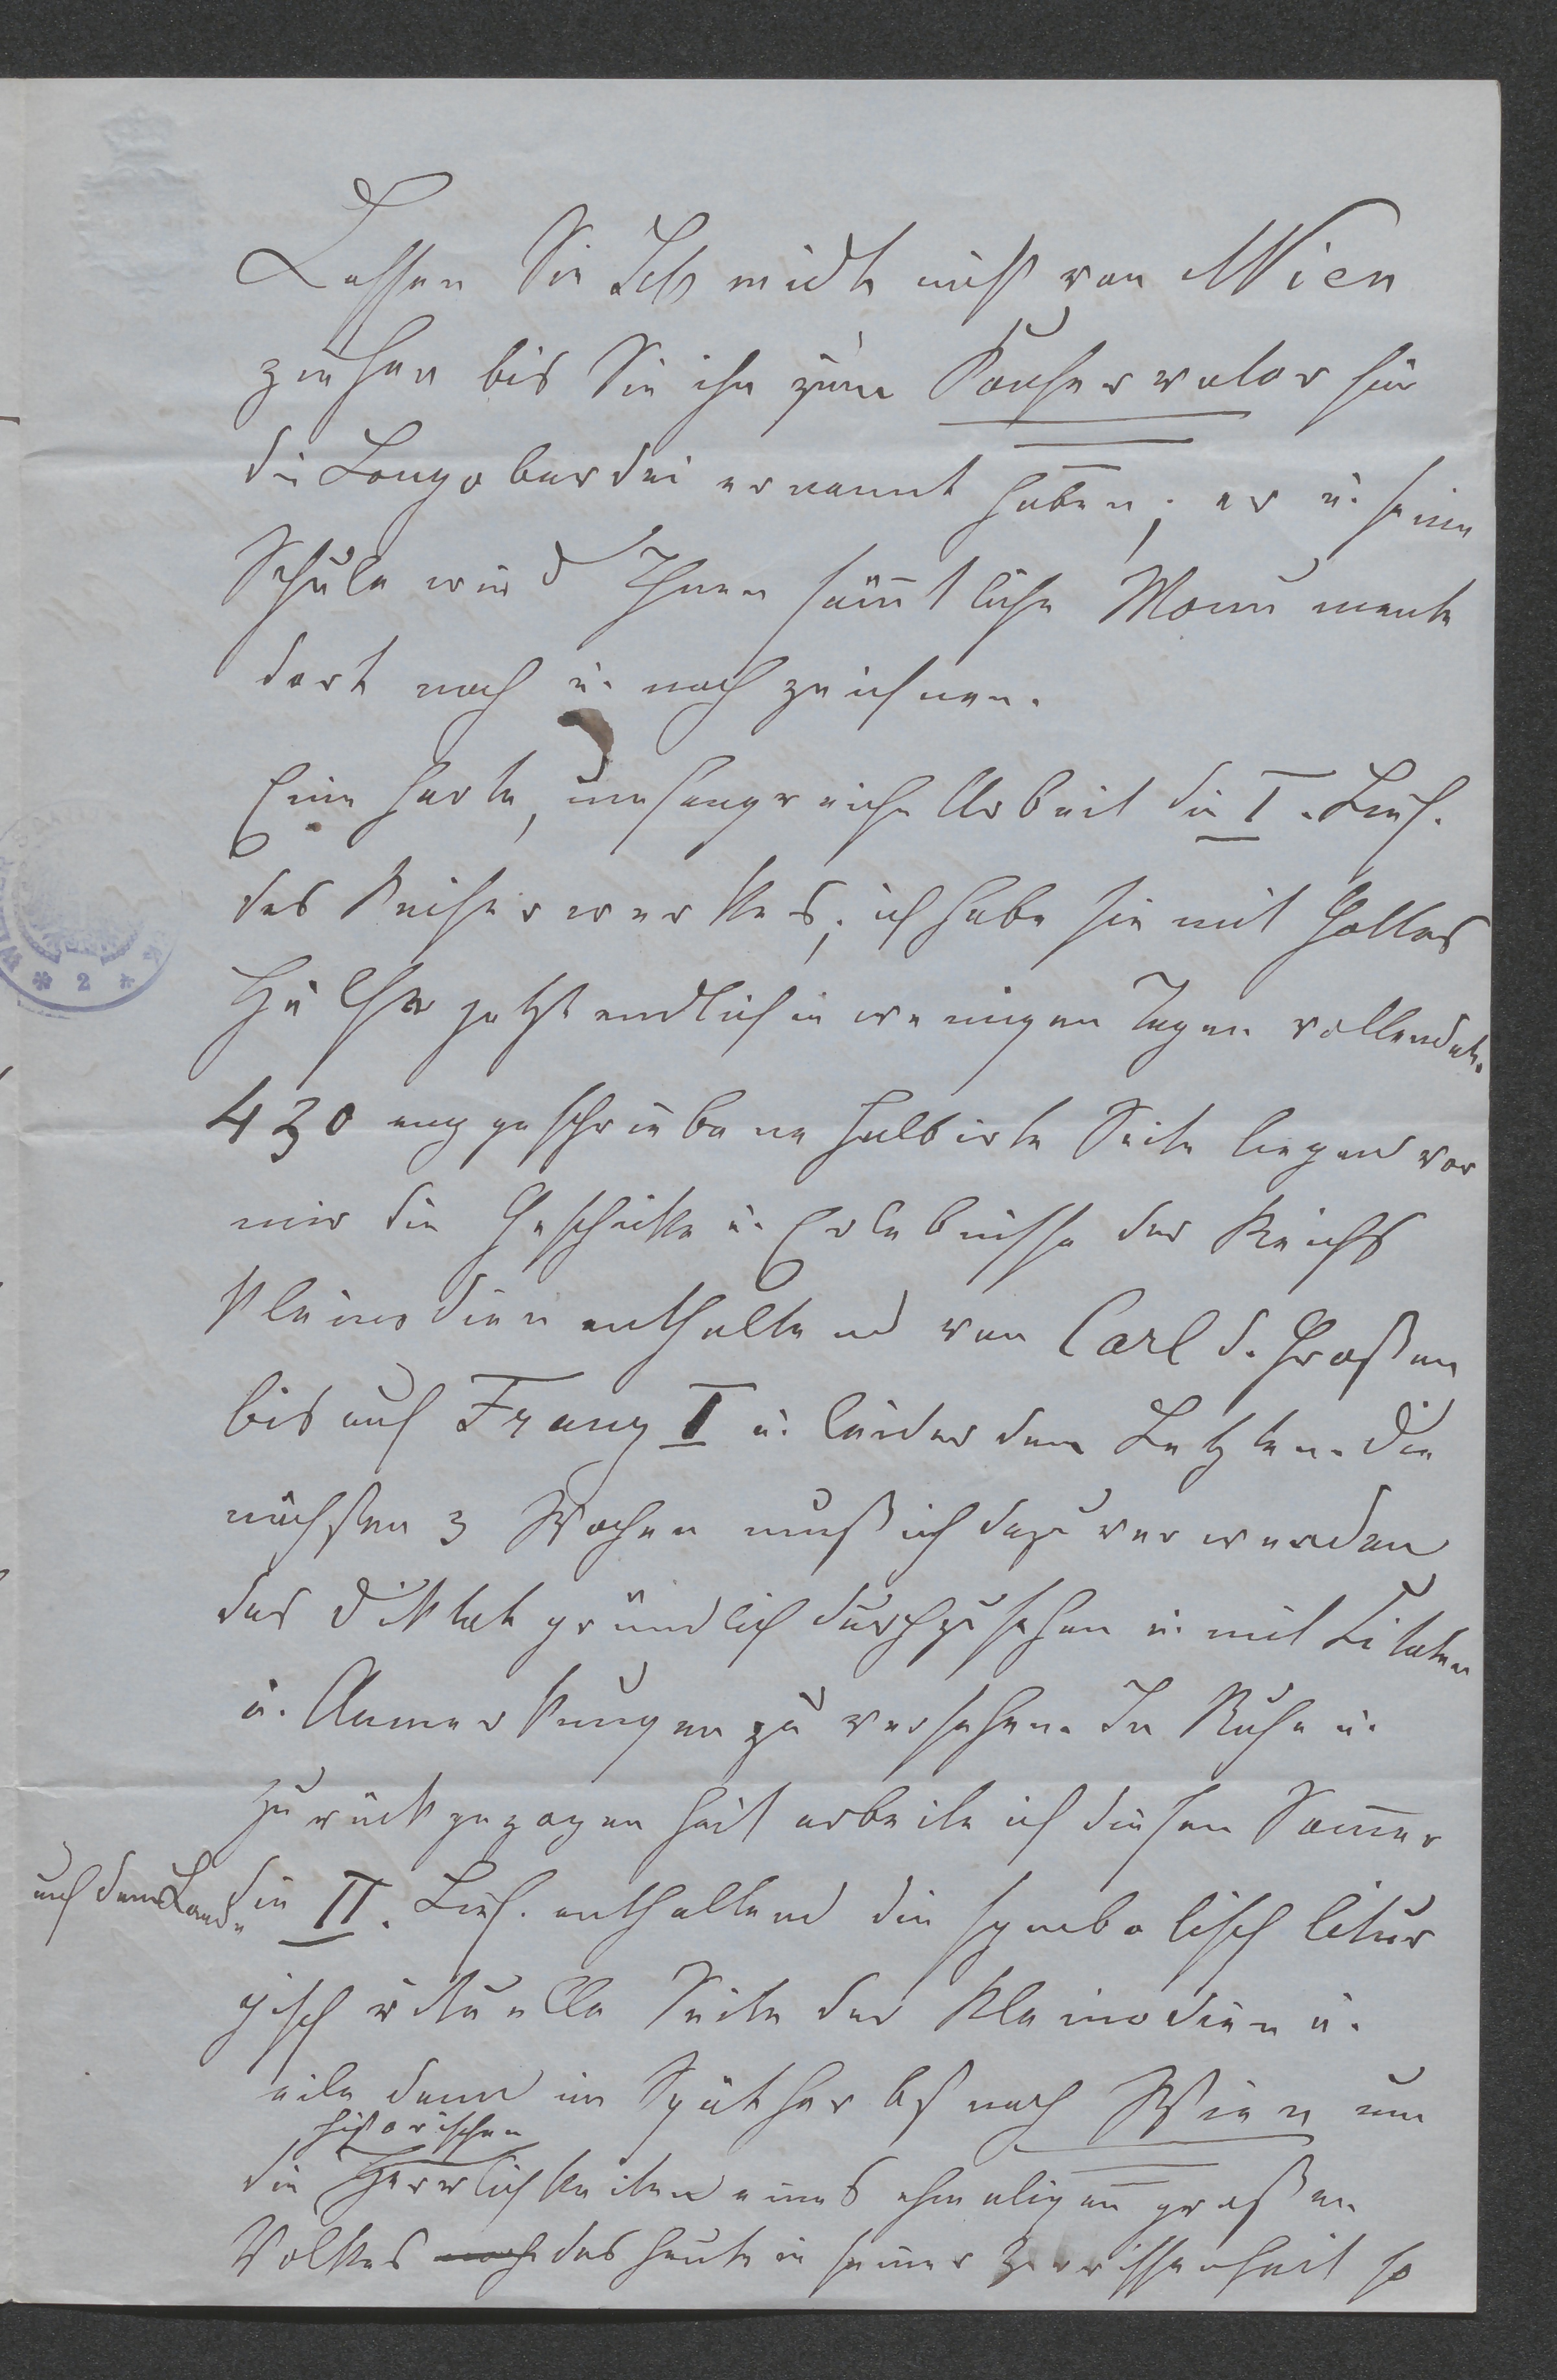 Lassen Sie Schmidt nicht von Wien
ziehen bis Sie ihn zum Konservator für
die Longobardei ernannt haben; er u. seine
Schule wird Ihnen sämtliche Monumente
dort nach u. nach zeichnen.
Eine harte, umfangreiche Arbeit die I. Lief.
des Kaiserwerkes; ich habe sie mit Gottes
Hülfe jetzt endlich in wenigen Tagen vollendet.
430 enggeschriebene halbirte Seite liegen vor
mir die Geschicke u. Erlebnisse der Reichs
kleinodien enthaltend von Carl d. Großen
bis auf Franz I u. leider dem Letzten. Die
nächsten 3 Wochen muß ich dazu verwenden
das Diktat gründlich durchzusehen u. mit Citaten
u. Anmerkungen zu versehen. In Ruhe u.
Zurückgezogenheit arbeite ich diesen Sommer
auf dem Lande die II. Lief. enthaltend die symbolisch litur
gisch rituelle Seite der Kleinodien u.
eile dann im Spätherbst nach Wien um
historischen
die Herrlichkeiten eines ehmaligen großen
Volkes noch das heute in seiner Zerrissenheit so
2